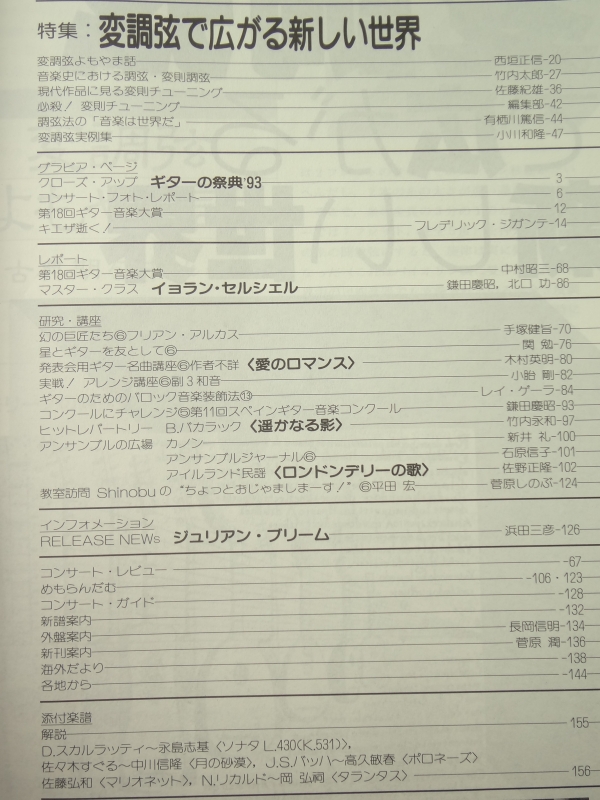 特集：変調弦で広がる新しい世界
変調弦よもやま話 西垣正信-20
音楽史における調弦・変則調弦 竹内太郎-27
現代作品に見る変則チューニング 佐藤紀雄-36
必殺！ 変則チューニング 編集部-42
調弦法の「音楽は世界だ」 有栖川篤信-44
変調弦実例集 小川和隆-47
グラビア・ページ
クローズ・アップ ギターの祭典'93 3
コンサート・フォト・レポート 6
第18回ギター音楽大賞 12
キエザ逝く！ フレデリック・ジガンテ-14
レポート
第18回ギター音楽大賞 中村昭三-68
マスター・クラス イョラン・セルシェル 鎌田慶昭，北口 功-86
研究・講座
幻の巨匠たち⑥フリアン・アルカス 手塚健旨-70
星とギターを友として⑥ 関 勉-76
発表会用ギター名曲講座⑥作者不詳〈愛のロマンス〉 木村英明-80
実戦！ アレンジ講座⑥副3和音 小胎 剛-82
ギターのためのバロック音楽装飾法⑬ レイ・ゲーラ-84
コンクールにチャレンジ⑤第11回スペインギター音楽コンクール 鎌田慶昭-93
ヒットレパートリー B.バカラック〈遥かなる影〉 竹内永和-97
アンサンブルの広場 カノン 新井 礼-100
アンサンブルジャーナル⑥ 石原信子-101
アイルランド民謡〈ロンドンデリーの歌〉 佐野正隆-102
教室訪問 Shinobuの“ちょっとおじゃましまーす！”⑥平田 宏 菅原しのぶ-124
インフォメーション
RELEASE NEWs ジュリアン・ブリーム 浜田三彦-126
コンサート・レビュー -67
めもらんだむ -106・123
コンサート・ガイド -128
新譜案内 -132
外盤案内 長岡信明-134
新刊案内 菅原 潤-136
海外だより -138
各地から -144
添付楽譜 155
解説
D.スカルラッティ〜永島志基〈ソナタ L.430(K.531)〉，
佐々木すぐる〜中川信隆〈月の砂漠〉，J.S.バッハ〜高久敏春〈ポロネーズ〉
佐藤弘和〈マリオネット〉，N.リカルド〜岡 弘祠〈タランタス〉 156